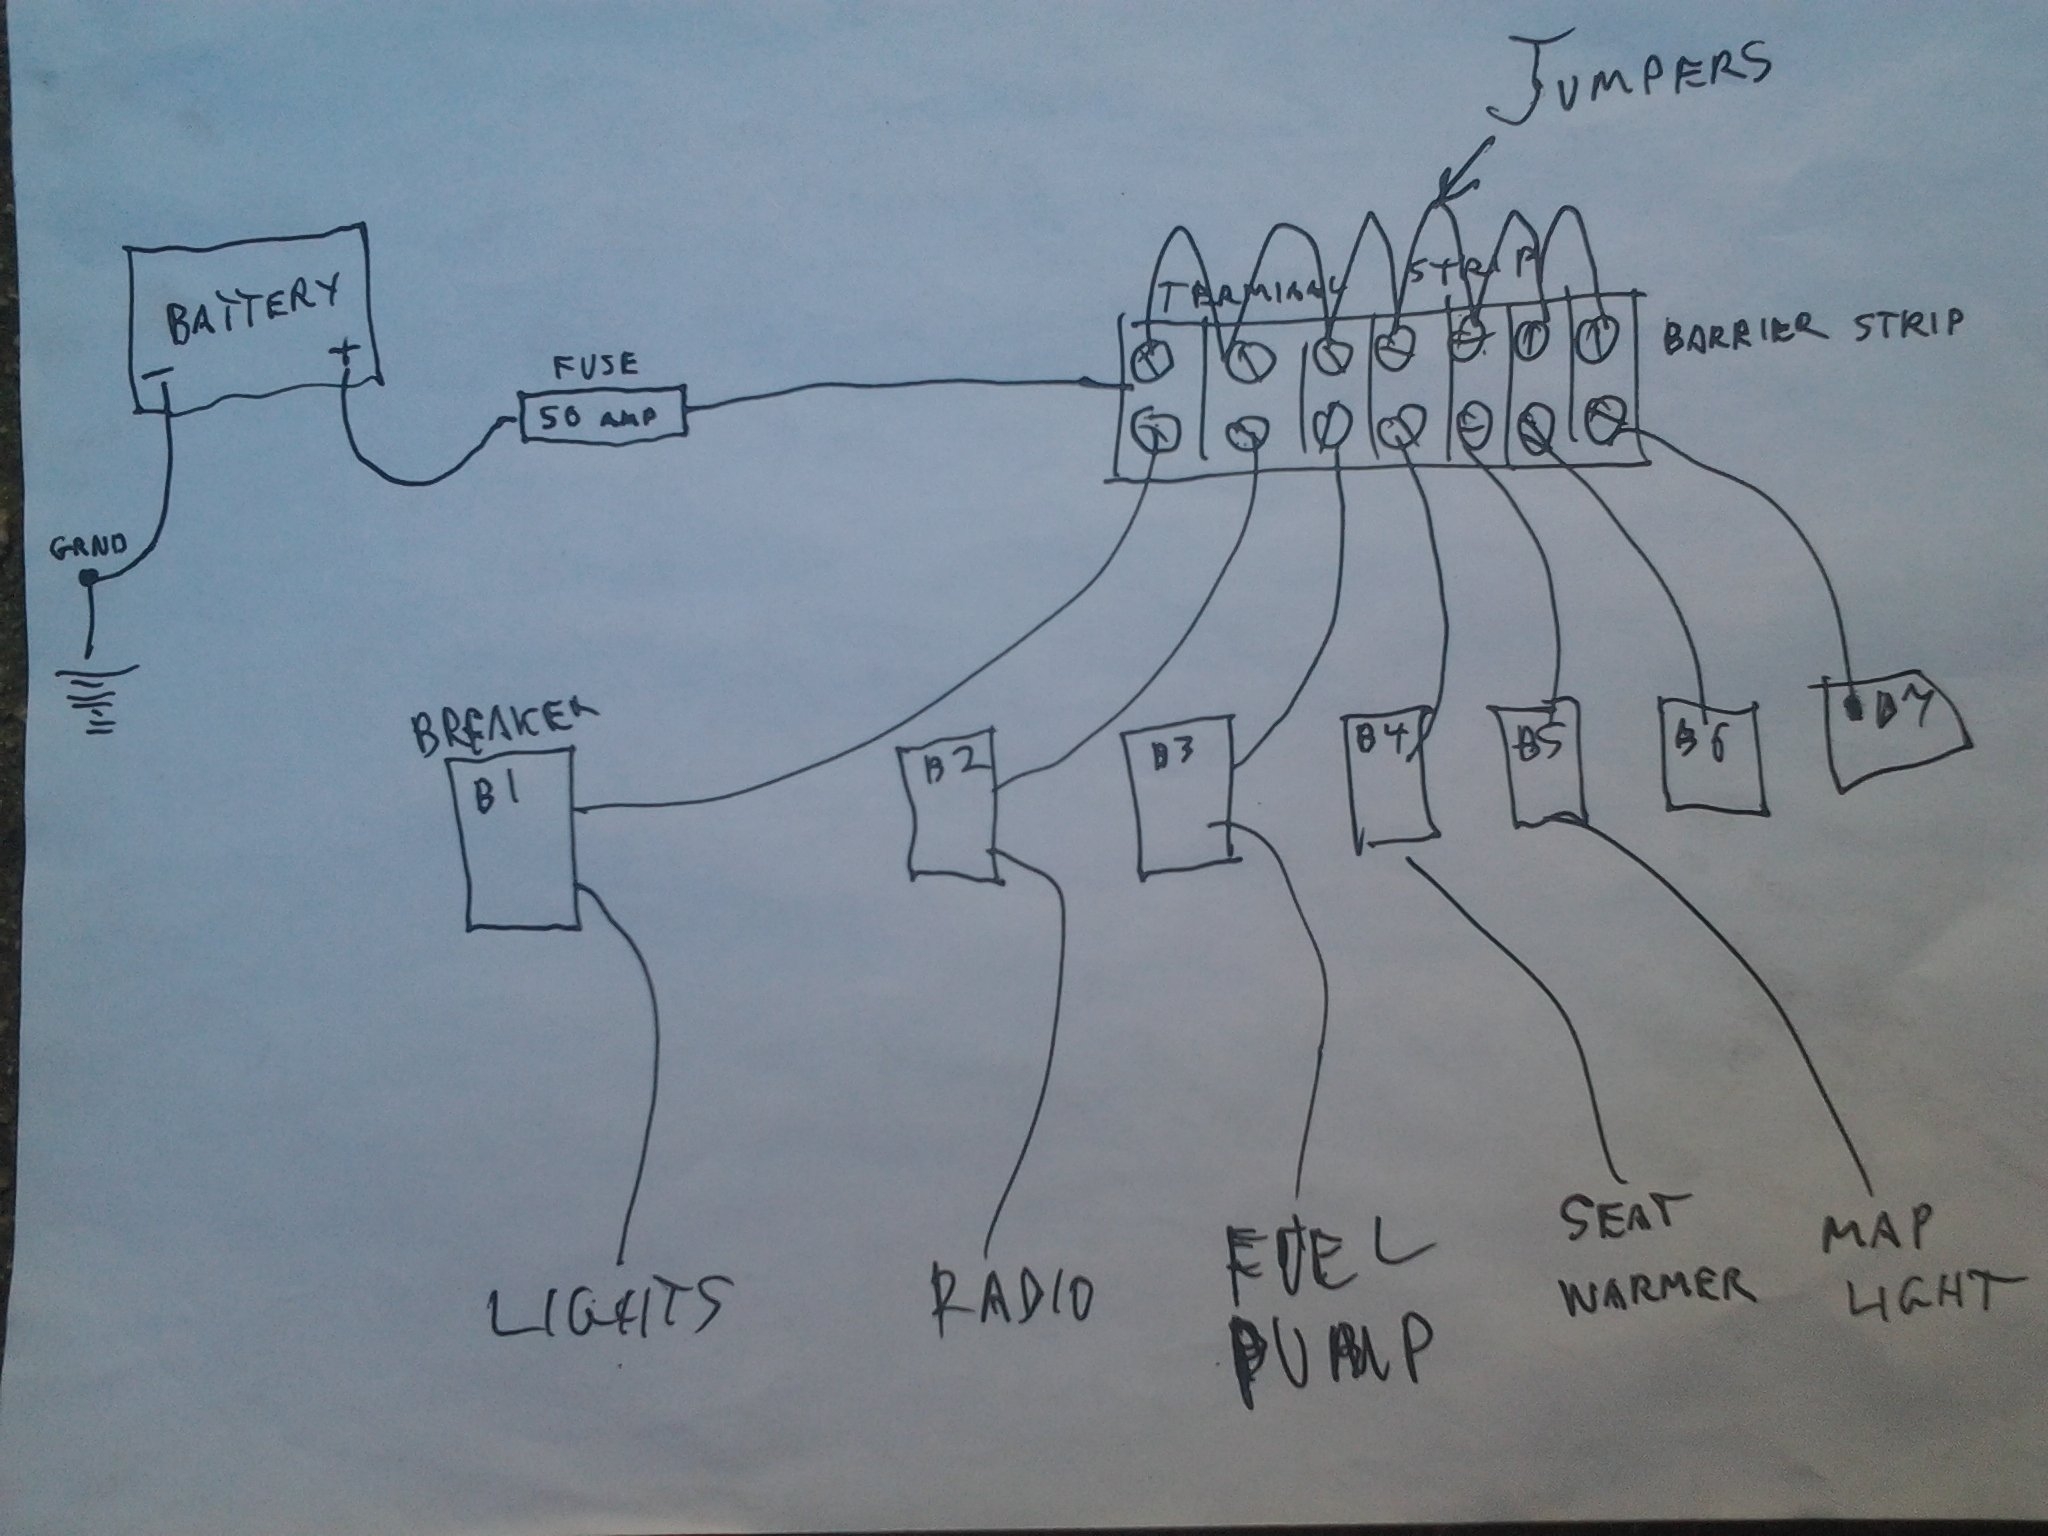 JUMPERS
BATTERY
- +
TERMINAL STRIP
BARRIER STRIP
FUSE
50 AMP
GRND
BREAKER
B1
B2
B3
B4
B5
B6
B7
LIGHTS
RADIO
FUEL
PUMP
SEAT
WARMER
MAP
LIGHT